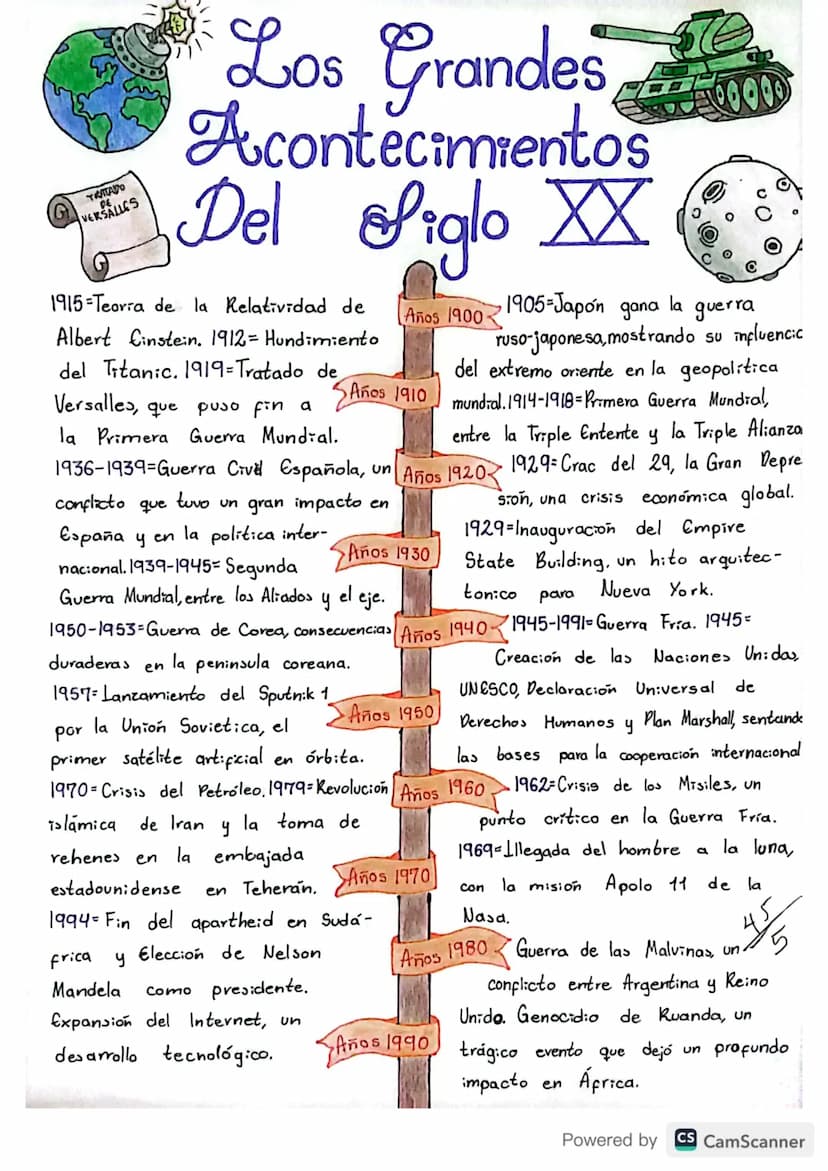 Los Grandes
Acontecimientos
Del Siglo XX
TRATADO
DE
VERSALLES
Años 1900
1905=Japón gana la guerra
ruso-japonesa, mostrando su influenci
del extremo oriente en la geopolítica
mundial. 1914-1918=Primera Guerra Mundial,
entre la Triple Entente y la Triple Alianza
Años 1910
1915=Teoría de la Relatividad de
Albert Einstein. 1912= Hundimiento
del Titanic. 1919=Tratado de
Versalles, que puso fin a
la Primera Guerra Mundial.
Años 1920
1929=Crac del 29, la Gran Depre
sión, una crisis económica global.
1929=Inauguración del Empire
State Building, un hito arquitec-
tonico para Nueva York.
Años 1930
1936-1939=Guerra Civil Española, un
conflicto que tuvo un gran impacto en
España y en la política inter-
nacional. 1939-1945= Segunda
Guerra Mundial, entre los Aliados y el eje.
Años 1940
1945-1991=Guerra Fría. 1945=
Creación de las Naciones Unidas,
UNESCO, Declaración Universal de
Derechos Humanos y Plan Marshall, sentand
las bases para la cooperación internacional
Años 1950
1950-1953=Guerra de Corea, consecuencias
duraderas en la peninsula coreana.
1957=Lanzamiento del Sputnik 1
por la Unión Sovietica, el
primer satélite artificial en órbita.
Años 1960
1962=Crisis de los Misiles, un
punto crítico en la Guerra Fría.
1969=Lllegada del hombre a la luna,
con la misión Apolo 11 de la
Nasa.
Años 1970
1970=Crisis del Petróleo. 1979=Revolución
islámica de Iran y la toma de
rehenes en la embajada
estadounidense en Teherán.
Años 1980
Guerra de las Malvinas, un
conflicto entre Argentina y Reino
Unido. Genocidio de Ruanda, un
trágico evento que dejó un profundo
impacto en África.
Años 1990
1994=Fin del apartheid en Sudá-
frica y Elección de Nelson
Mandela como presidente.
Expansión del Internet, un
desarrollo tecnológico.
45/5
Powered by CS CamScanner